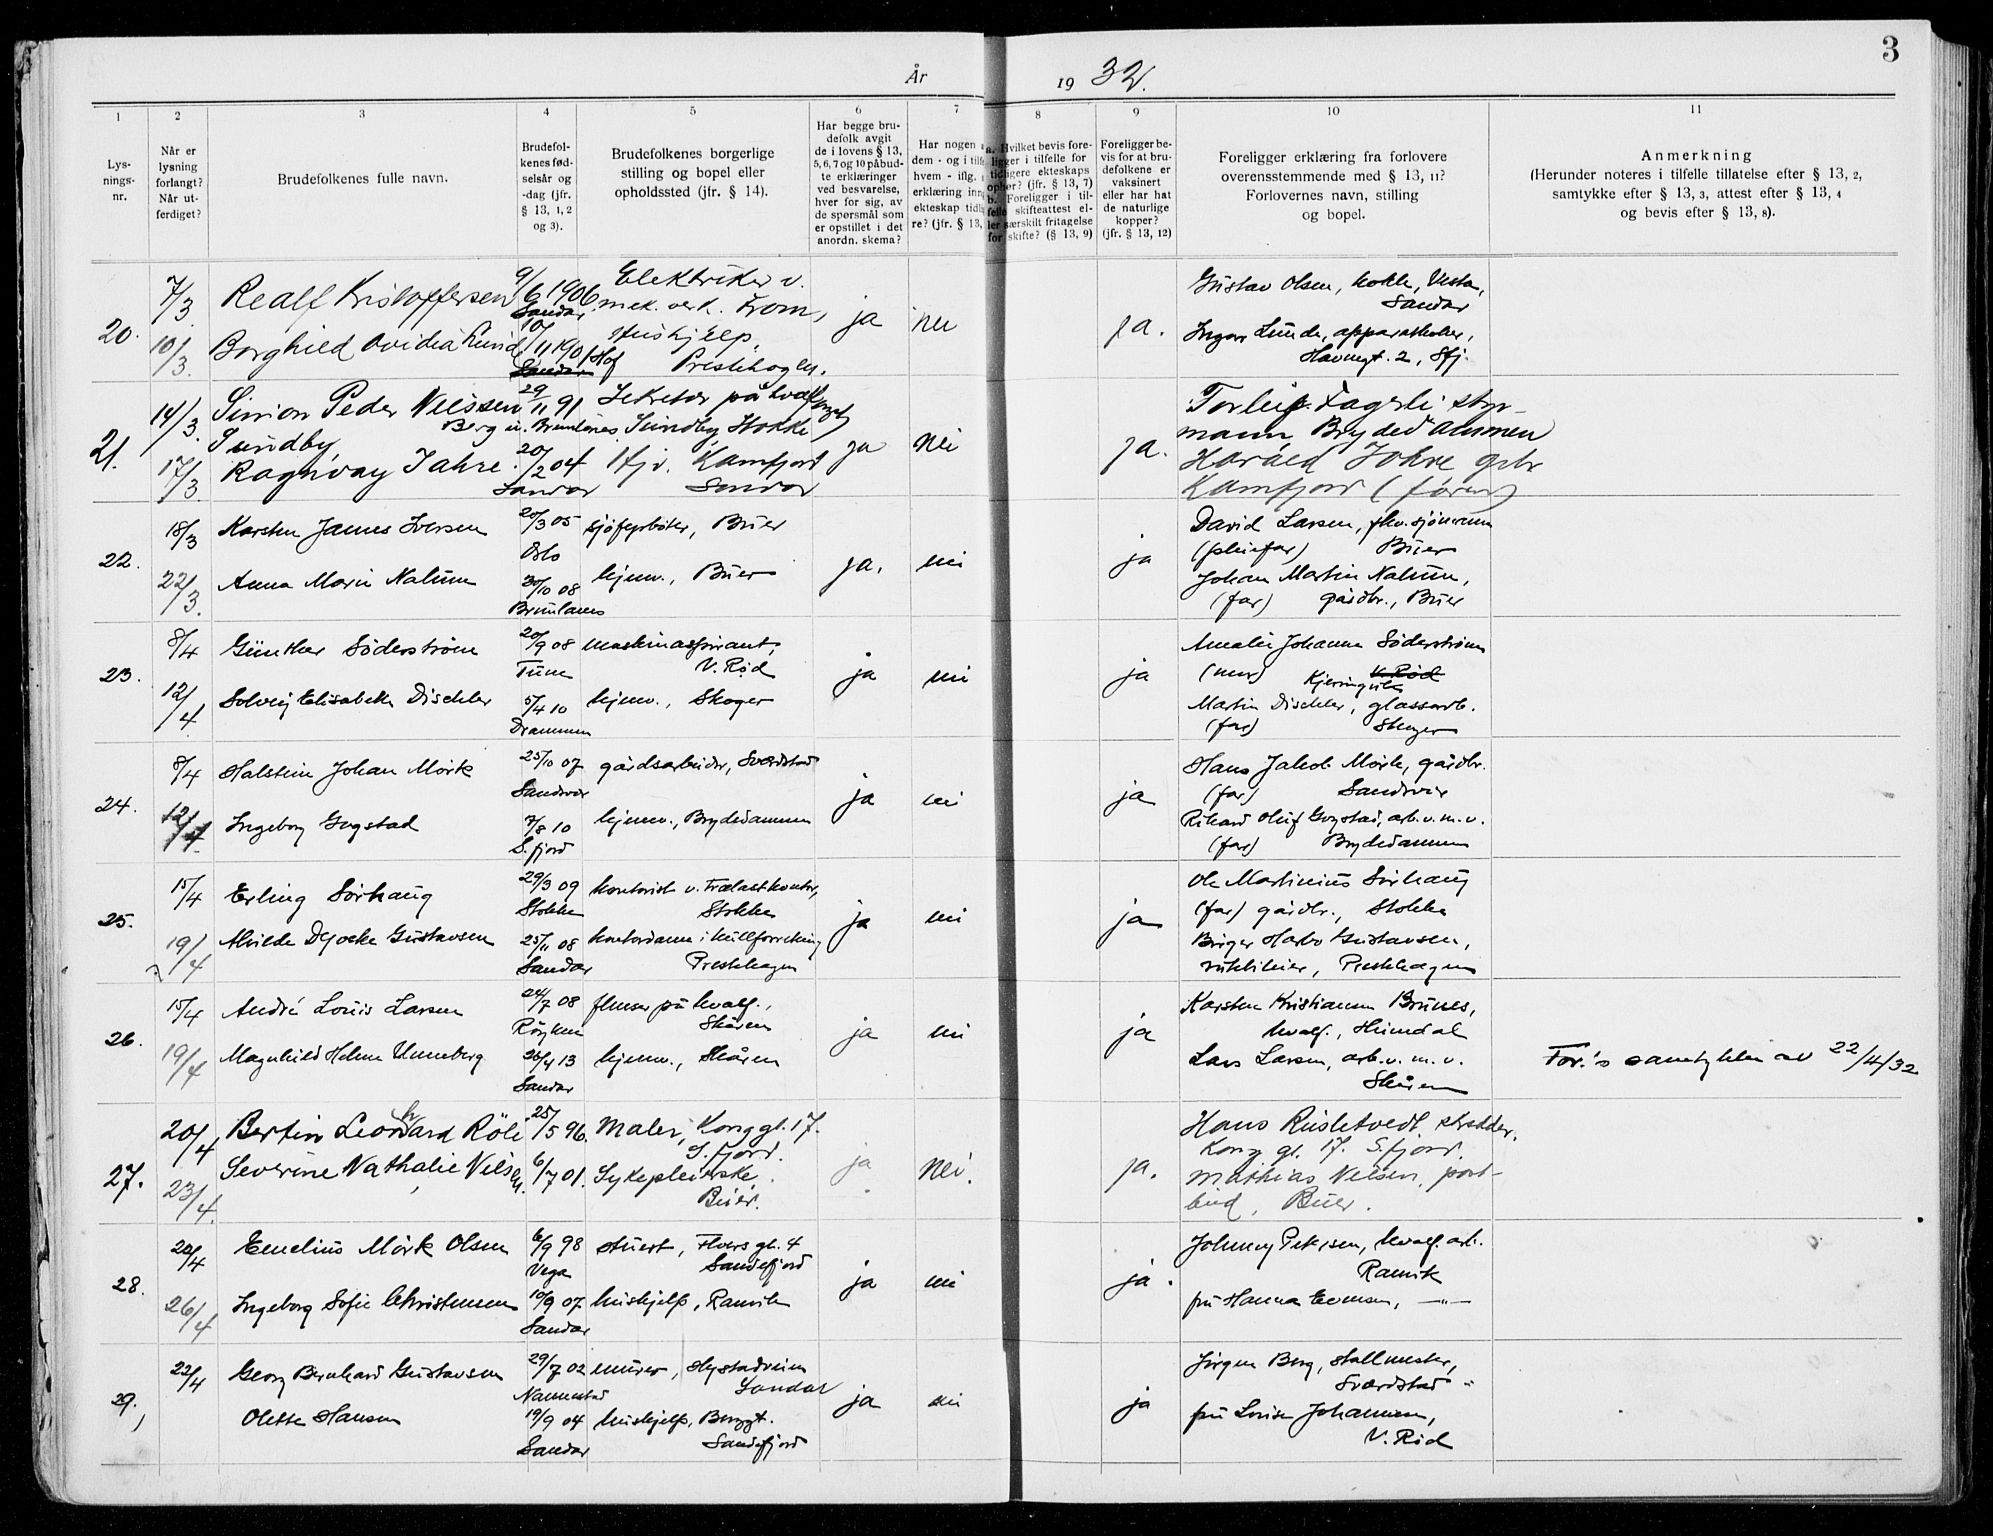 3
År 1932.
1 2 3 4 5 6 7 8 9 10 11
Lys-
nings-
nr.
Når er
lysning
forlangt?
Når ut-
ferdiget?
Brudefolkenes fulle navn.
Brudefol-
kenes fød-
selsår og
-dag (jfr.
§ 13, 1, 2
og 3).
Brudefolkenes borgerlige
stilling og bopel eller
opholdssted (jfr. § 14).
Har begge bru-
defolk avgit
de i lovens § 13,
5, 6, 7 og 10 påbud-
te erklæringer
ved besvarelse,
hver for sig, av
de spørsmål som
er opstillet i det
anordn. skema?
Har nogen
dem - og i tilf.
hvem - iflg.
erklæring inn
ekteskap tidl
re? (jfr. § 13,
a. Hvilket bevis fore-
ligger i tilfelle for
tidligere ekteskaps
ophør? (jfr. § 13, 7)
b. Foreligger i til-
felle skifteattest el-
ler særskilt fritagelse
for skifte? (§ 13, 9)
Foreligger be-
vis for at bru-
defolkene er
vaksinert
eller har hat
de naturlige
kopper?
(jfr. § 13, 12)
Foreligger erklæring fra forlovere
overensstemmende med § 13, 11?
Forlovernes navn, stilling
og bopel.
Anmerkning
(Herunder noteres i tilfelle tillatelse efter § 13, 2,
samtykke efter § 13, 3, attest efter § 13, 4
og bevis efter § 13, 8).
20.
7/3
10/3.
Realf Kristoffersen
9/6 1906
Sandar.
Elektriker v.
mek. verk. Fram,
Borghild Ovidia Lund
10/11 1901
Sandar Hof
Hushjelp,
Prestehagen.
ja
nei
ja.
Gustav Olsen, kokk, Vesta,
Sandar
Ingar Lunde, apparatkoker,
Havnegt. 2, Sfj.
21.
14/3.
17/3.
Simon Peder Nilssen
Sundby,
29/11 91
Berg i Brunlanes
Sekretær på hvalfangst
Sundby Stokke
Ragnvay Jahre.
20/2 04
Sandar
Hjv. Kamfjord
Sandar
ja
nei
ja.
Torleif Fagerli styr-
mann Brydedammen
Harald Jahre gbr
Kamfjord (faren)
22.
18/3
22/3.
Karsten James Iversen
20/3 05
Oslo
sjøfyrbøter, Buer
Anna Marie Nalum
30/10 08
Brunlanes
hjemv., Buer
ja.
nei
ja
David Larsen, fhv. sjømann
(pleiefar) Buer
Johan Martin Nalum,
(far) gårdbr., Buer
23.
8/4
12/4.
Günther Söderström
20/9 08
Tune
maskinaspirant,
V. Rød
Solveig Elisabeth Dischler
5/4 10
Drammen
hjemv., Skoger
ja
nei
ja
Amalie Johanne Söderström
(mor) V. Rød
Kjerringvik
Martin Dischler, glassarb.
(far) Skoger
24.
8/4
12/4.
Halstein Johan Mørk
25/10 07
Sandsvær
gårdsarbeider, Sverdstad
Ingeborg Gogstad
7/8 10
S.fjord
hjemv., Brydedammen
ja
nei
ja
Hans Jakob Mørk, gårdbr.
(far) Sandsvær
Rikard Oluf Gogstad, arb. v. m. v.
(far) Brydedammen
25.
15/4
19/4
Erling Sørhaug
29/3 09
Stokke
kontorist v. Trælastkontor,
Stokke
Alvilde Dyveke Gustavsen
25/11 08
Sandar
kontordame i kullforretning
Prestehagen
ja
nei
ja
Ole Martinius Sørhaug
(far) gårdbr., Stokke
Birger Harbo Gustavsen,
Prestehagen
26.
15/4
19/4
André Louis Larsen
24/7 08
Røyken
flenser på hvalf.,
Skåren
Magnhild Helene Unneberg
26/4 13
Sandar
hjemv., Skåren
ja
nei
ja
Karsten Kristiansen Brunes,
hvalf., Heimdal
Lars Larsen, arb. v. m. v.
Skåren
For.'s samtykke av 22/4/32
27.
20/4
23/4.
Bertin Leonhard Röli
25/5 96.
Maler, Kongggt. 17.
S. fjord.
Severine Nathalie Nilsen.
6/7 01.
Sykepleierske,
Buer.
ja
nei.
ja.
Hans Rusletvedt skredder.
Kongg gt. 17. S. fjord.
Mathias Nilsen, post-
bud, Buer.
28.
20/4
26/4
Emelius Mørk Olsen
6/9 98
Vega
stuert, Thors gt. 4
Sandefjord
Ingeborg Sofie Christensen
10/9 07
Sandar
hushjelp, Ranvik
ja
nei
ja.
Johnny Pettersen, hvalf. arb.
Ranvik
fru Hanna Evensen, —"—
29.
22/4
Georg Bernhard Gustavsen
29/7 02
Nannestad
murer, Hystadveien
Sandar
Olette Hansen
19/9 04
Sandar
hushjelp, Berggt.
Sandefjord
ja
nei
ja
Jörgen Berg, stallmester,
Sverdstad
fru Louise Johannesen,
V. Rød